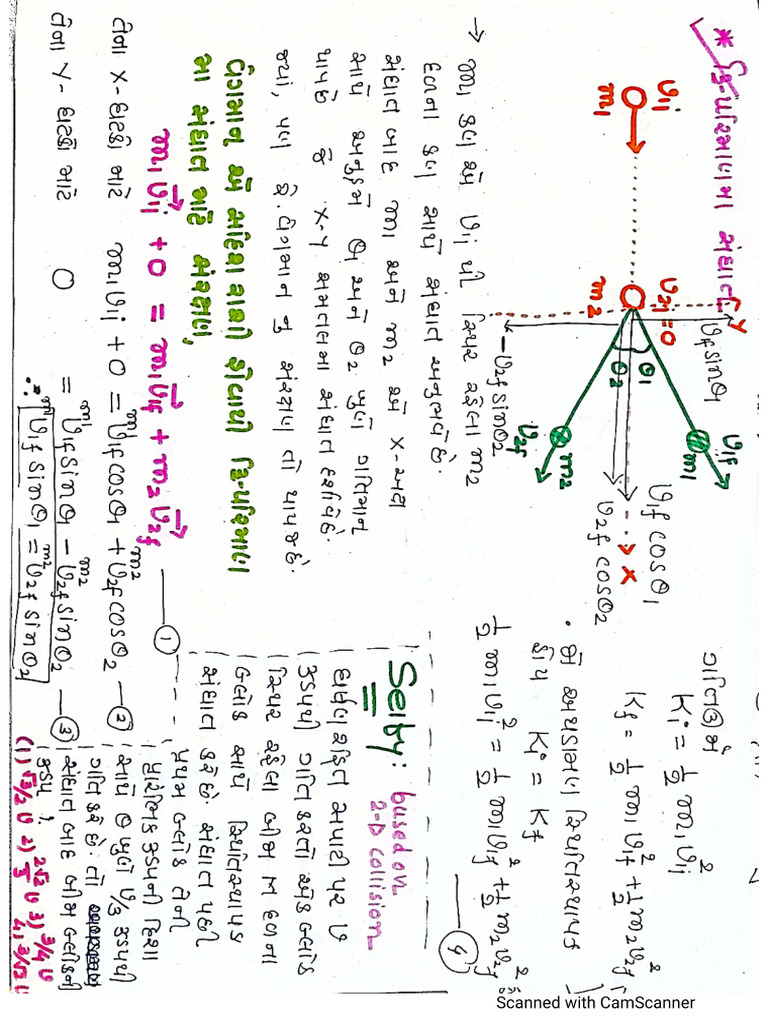 * દ્વિ-પરિમાણમાં સંઘાત
v₁i
m₁
v₂i=0
m₂
v₁f sinθ₁
-v₂f sinθ₂
θ₁
θ₂
v₁f
m₁
m₂
v₂f
v₁f cosθ₁
→ x
v₂f cosθ₂
→ m₁ કણ એ v₁i થી સ્થિર રહેલા m₂
દળના કણ સાથે સંઘાત અનુભવે છે.
સંઘાત બાદ m₁ અને m₂ એ x-અક્ષ
સાથે અનુક્રમે θ₁ અને θ₂ ખૂણે ગતિમાન
થાય છે જે x-y સમતલમાં સંઘાત દર્શાવે છે.
જ્યાં, પણ રે.વેગમાન નું સંરક્ષણ તો થાય જ છે.
વેગમાન એ સદિશ રાશી હોવાથી દ્વિ-પરિમાણ
મા સંઘાત માટે સંરક્ષણ,
m₁v⃗₁i + 0 = m₁v⃗₁f + m₂v⃗₂f —①
તેના x-ઘટકો માટે m₁v₁i + 0 = m₁v₁f cosθ₁ + m₂v₂f cosθ₂ —②
તેના y-ઘટકો માટે 0 = m₁v₁f sinθ₁ - m₂v₂f sinθ₂ —③
∴ m₁v₁f sinθ₁ = m₂v₂f sinθ₂
ગતિઊર્જા
Ki = ½ m₁v₁i²
Kf = ½ m₁v₁f² + ½ m₂v₂f²
• જો અથડામણ સ્થિતિસ્થાપક
હોય Ki = Kf
½ m₁v₁i² = ½ m₁v₁f² + ½ m₂v₂f²
④
Selby: based on
2-D collision
ઘર્ષણરહિત સપાટી પર v
ઝડપથી ગતિ કરતો એક બ્લૉક
સ્થિર રહેલા બીજા M દળના
બ્લૉક સાથે સ્થિતિસ્થાપક
સંઘાત કરે છે. સંઘાત પછી
પ્રથમ બ્લૉક તેની
પ્રારંભિક ઝડપની દિશા
સાથે θ ખૂણે v/3 ઝડપથી
ગતિ કરે છે. તો
સંઘાત બાદ બીજા બ્લૉકની
ઝડપ,
(1) √3/2 v 2) 2√2/3 v 3) 3/4 v
4) 3/√2 v
Scanned with CamScanner